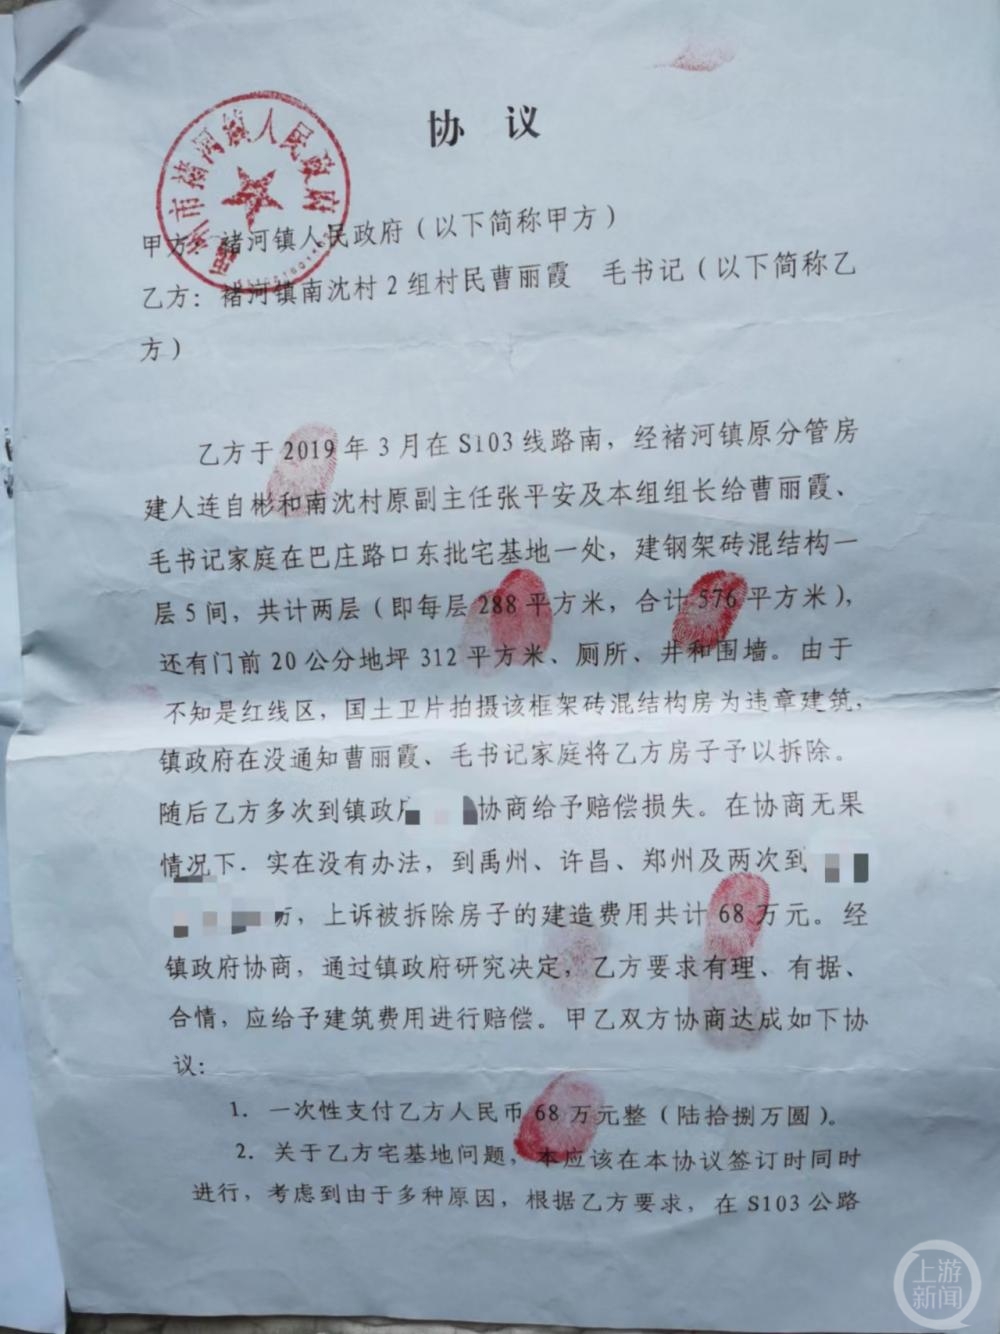 协 议
禹州市褚河镇人民政府
甲方：褚河镇人民政府（以下简称甲方）
乙方：褚河镇南沈村2组村民曹丽霞 毛书记（以下简称乙
方）
乙方于2019年3月在S103线路南，经褚河镇原分管房
建人连自彬和南沈村原副主任张平安及本组组长给曹丽霞、
毛书记家庭在巴庄路口东批宅基地一处，建钢架砖混结构一
层5间，共计两层（即每层288平方米，合计576平方米），
还有门前20公分地坪312平方米、厕所、井和围墙。由于
不知是红线区，国土卫片拍摄该框架砖混结构房为违章建筑，
镇政府在没通知曹丽霞、毛书记家庭将乙方房子予以拆除。
随后乙方多次到镇政 协商给予赔偿损失。在协商无果
情况下．实在没有办法，到禹州、许昌、郑州及两次到
，上诉被拆除房子的建造费用共计68万元。经
镇政府协商，通过镇政府研究决定，乙方要求有理、有据、
合情，应给予建筑费用进行赔偿。甲乙双方协商达成如下协
议：
1．一次性支付乙方人民币68万元整（陆拾捌万圆）。
2．关于乙方宅基地问题，本应该在本协议签订时同时
进行，考虑到由于多种原因，根据乙方要求，在S103公路
上游
新闻